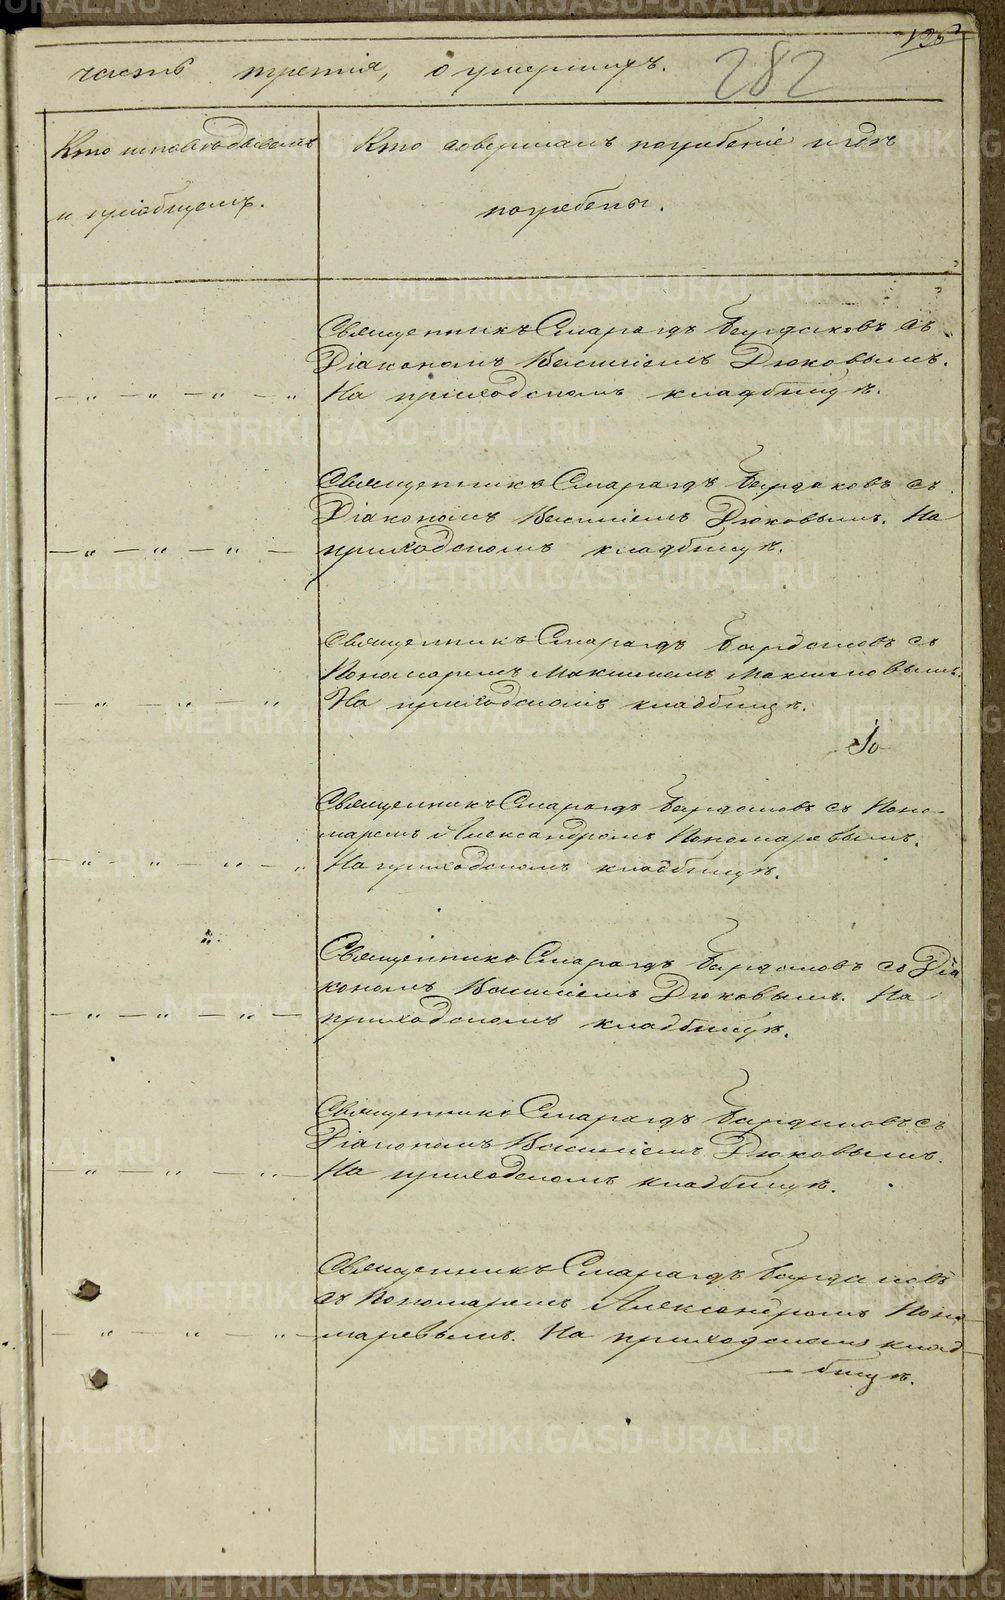 часть третія, о умершихъ.
282
Кто исповѣдывалъ
и пріобщалъ.
Кто совершалъ погребеніе и гдѣ
погребены.
Священникъ Смарагдъ Бирдаковъ съ
Діакономъ Василіемъ Дюковымъ.
— „ — „ — „ — „ На приходскомъ кладбищѣ.
Священникъ Смарагдъ съ
Діакономъ Василіемъ Дюковымъ. На
— „ — „ — „ — приходскомъ кладбищѣ.
Священникъ Смарагдъ съ
Пономаремъ Максимомъ Максимовымъ.
— „ — „ — „ На приходскомъ кладбищѣ.
Священникъ Смарагдъ съ Поно-
маремъ Александромъ Пономаревымъ.
— „ — „ — „ — „ На приходскомъ кладбищѣ.
Священникъ Смарагдъ съ Діа
кономъ Василіемъ Дюковымъ. На
— „ — „ — „ — приходскомъ кладбищѣ.
Священникъ Смарагдъ съ
Діакономъ Василіемъ Дюковымъ.
— „ — „ — „ — На приходскомъ кладбищѣ.
Священникъ Смарагдъ
съ Пономаремъ Александромъ Поно-
— „ — „ — „ — маревымъ. На приходскомъ клад-
— бищѣ.
METRIKI.GASO-URAL.RU